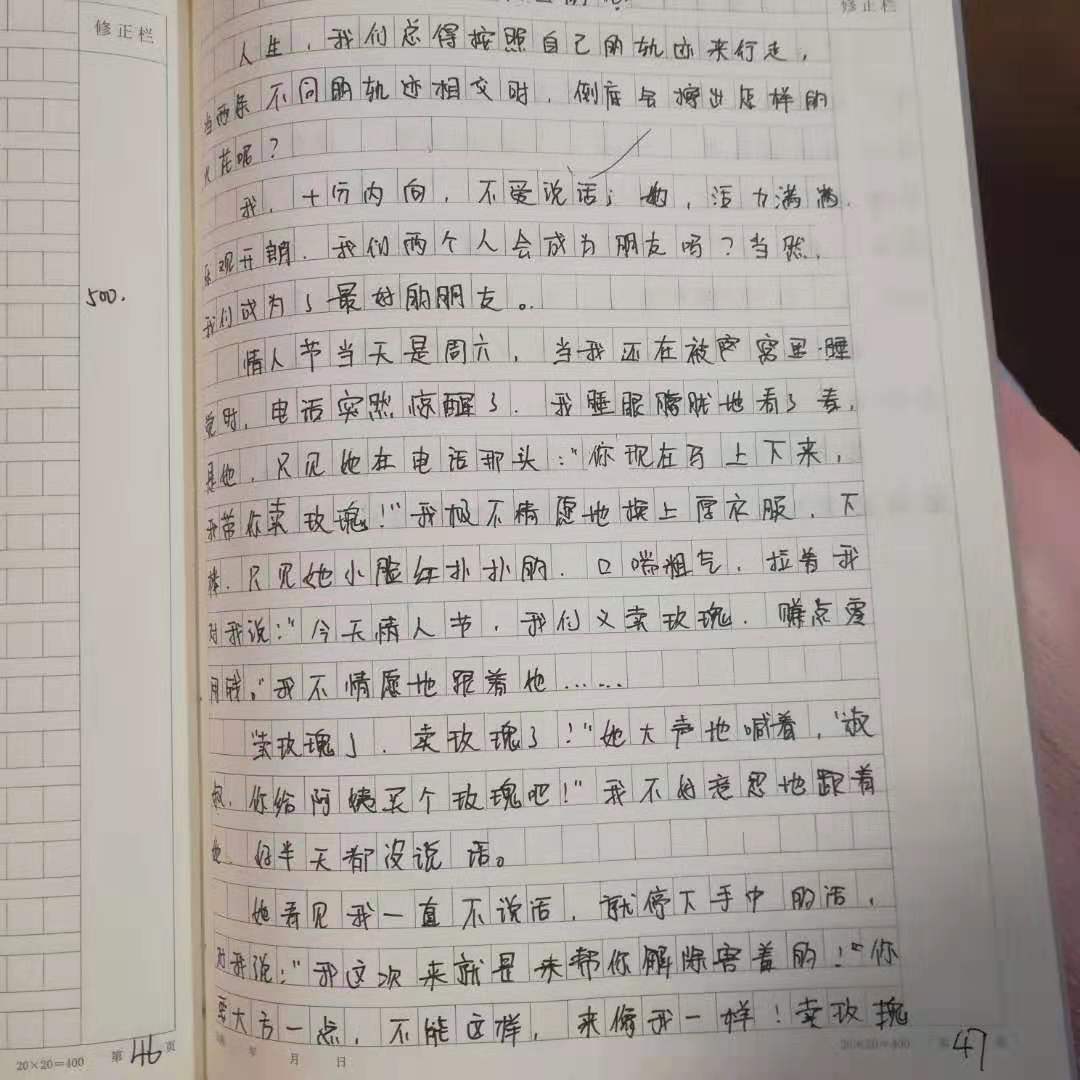 修正栏
修正栏
人生，我们总得按照自己的轨迹来行走，
当两条不同的轨迹相交时，倒底会擦出怎样的
火花呢？
我，十份内向，不爱说话；她，活力满满，
乐观开朗，我们两个人会成为朋友吗？当然，
我们成为了最好的朋友。
500.
情人节当天是周六，当我还在被窝里睡
觉时，电话突然惊醒了，我睡眼朦胧地看了看，
是她，只见她在电话那头：“你现在马上下来，
我带你卖玫瑰！”我极不情愿地换上厚衣服，下
楼，只见她小脸红扑扑的，口喘粗气，拉着我
对我说：“今天情人节，我们义卖玫瑰，赚点零
用钱。”我不情愿地跟着她……
“卖玫瑰了，卖玫瑰了！”她大声地喊着，“叔
叔，你给阿姨买个玫瑰吧！”我不好意思地跟着
她，好半天都没说话。
她看见我一直不说话，就停下手中的活，
对我说：“我这次来就是来帮你解除害羞的！“你
要大方一点，不能这样，来像我一样！卖玫瑰
20×20=400 第46页 年 月 日 20×20=400 第47页